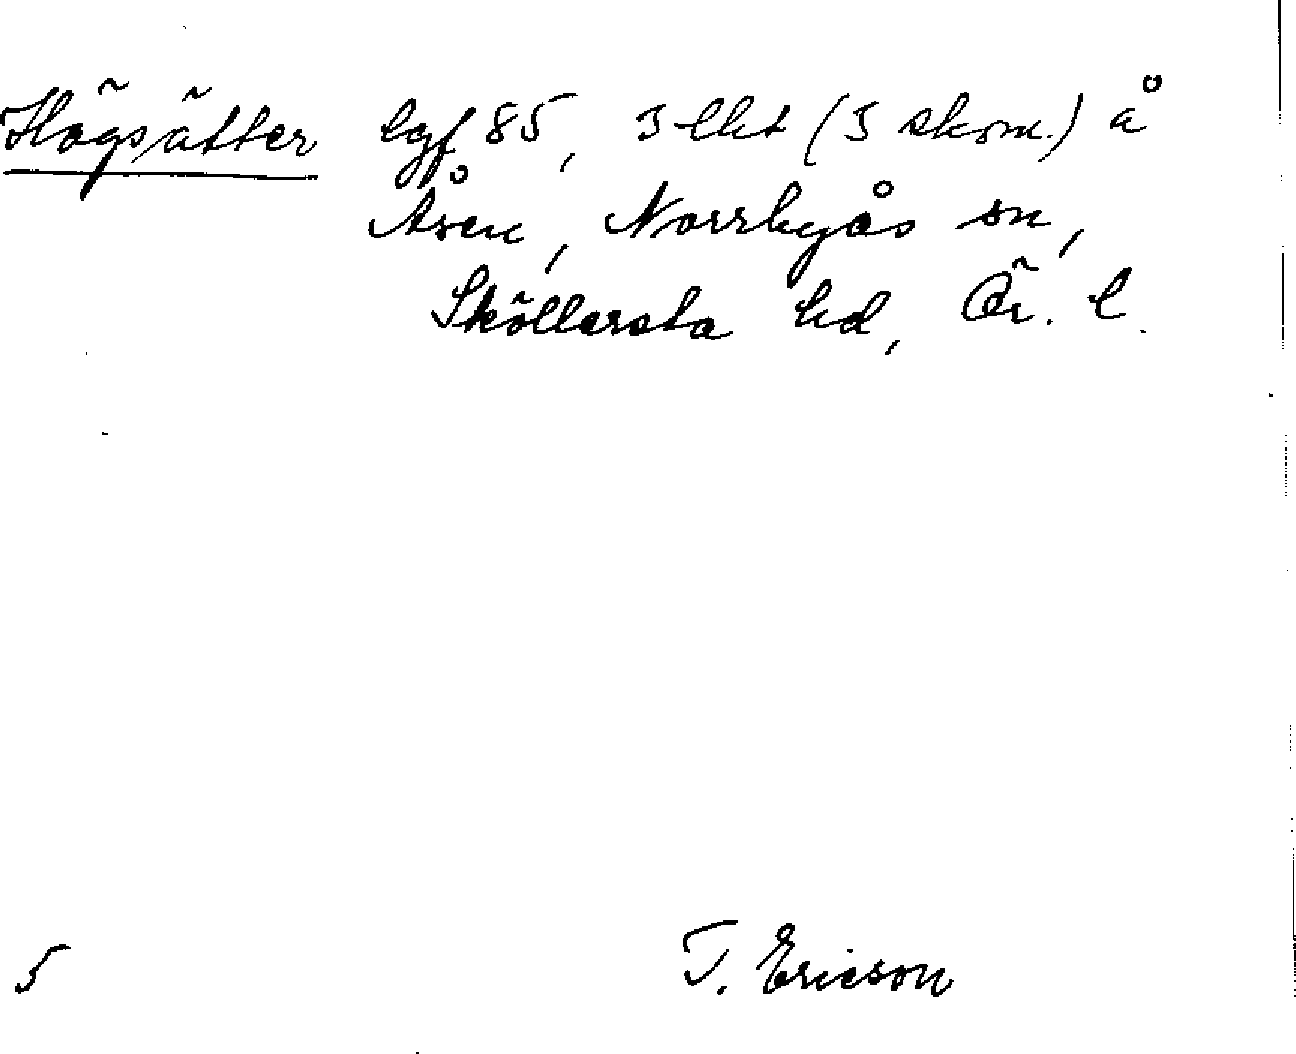 Högsätter lgf 85, 3 lht (3 skom.) å
Åsen, Norrbyås sn,
Sköllersta hd, Ör. l.
5 T. Ericson